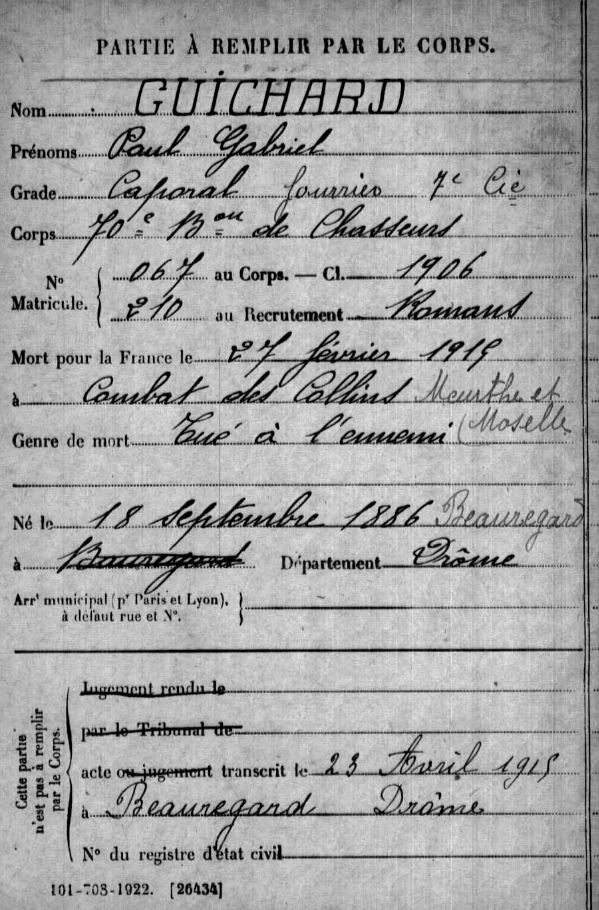 PARTIE À REMPLIR PAR LE CORPS.
Nom GUICHARD
Prénoms Paul Gabriel
Grade Caporal fourrier 7e Cie
Corps 70e Bon de Chasseurs
No Matricule. { 067 au Corps. — Cl. 1906
210 au Recrutement Romans
Mort pour la France le 27 février 1915
à Combat des Collins Meurthe et
Genre de mort Tué à l'ennemi (Moselle
Né le 18 Septembre 1886 Beauregard
à Bauregard Département Drôme
Arrt municipal (pr Paris et Lyon), à défaut rue et No. }
Cette partie n'est pas à remplir par le Corps. {
Jugement rendu le
par le Tribunal de
acte ou jugement transcrit le 23 Avril 1915
à Beauregard Drôme
No du registre d'état civil
101-708-1922. [26434]